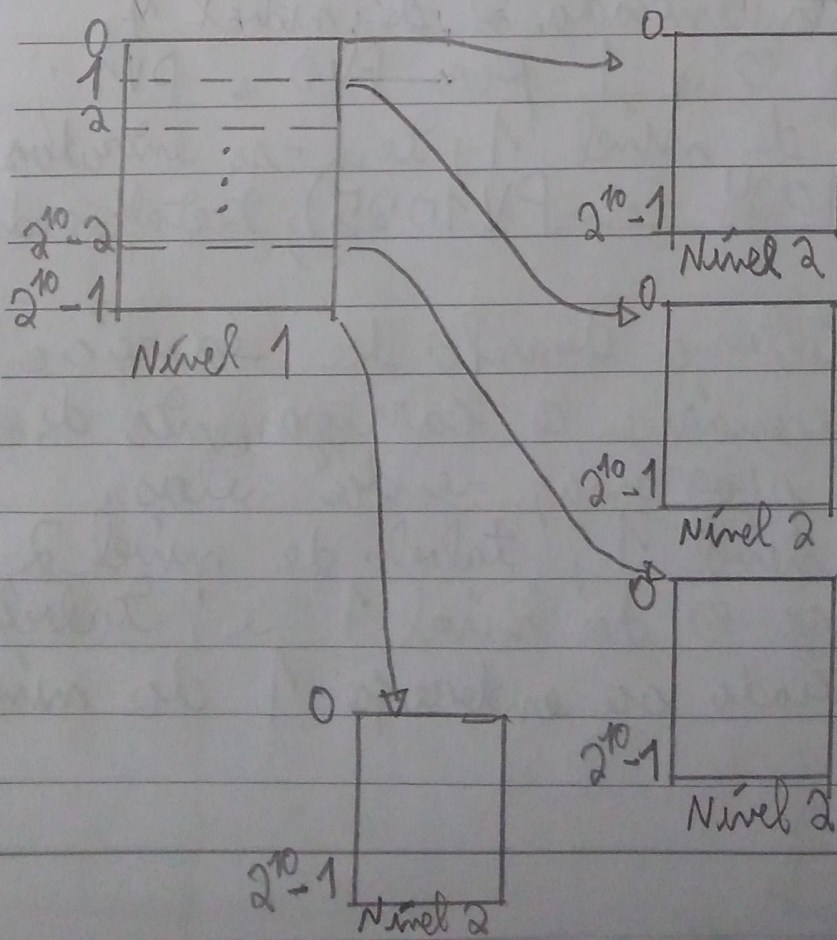 0
1
2
2^10-2
2^10-1
Nível 1
0
2^10-1
Nível 2
0
2^10-1
Nível 2
0
2^10-1
Nível 2
0
2^10-1
Nível 2